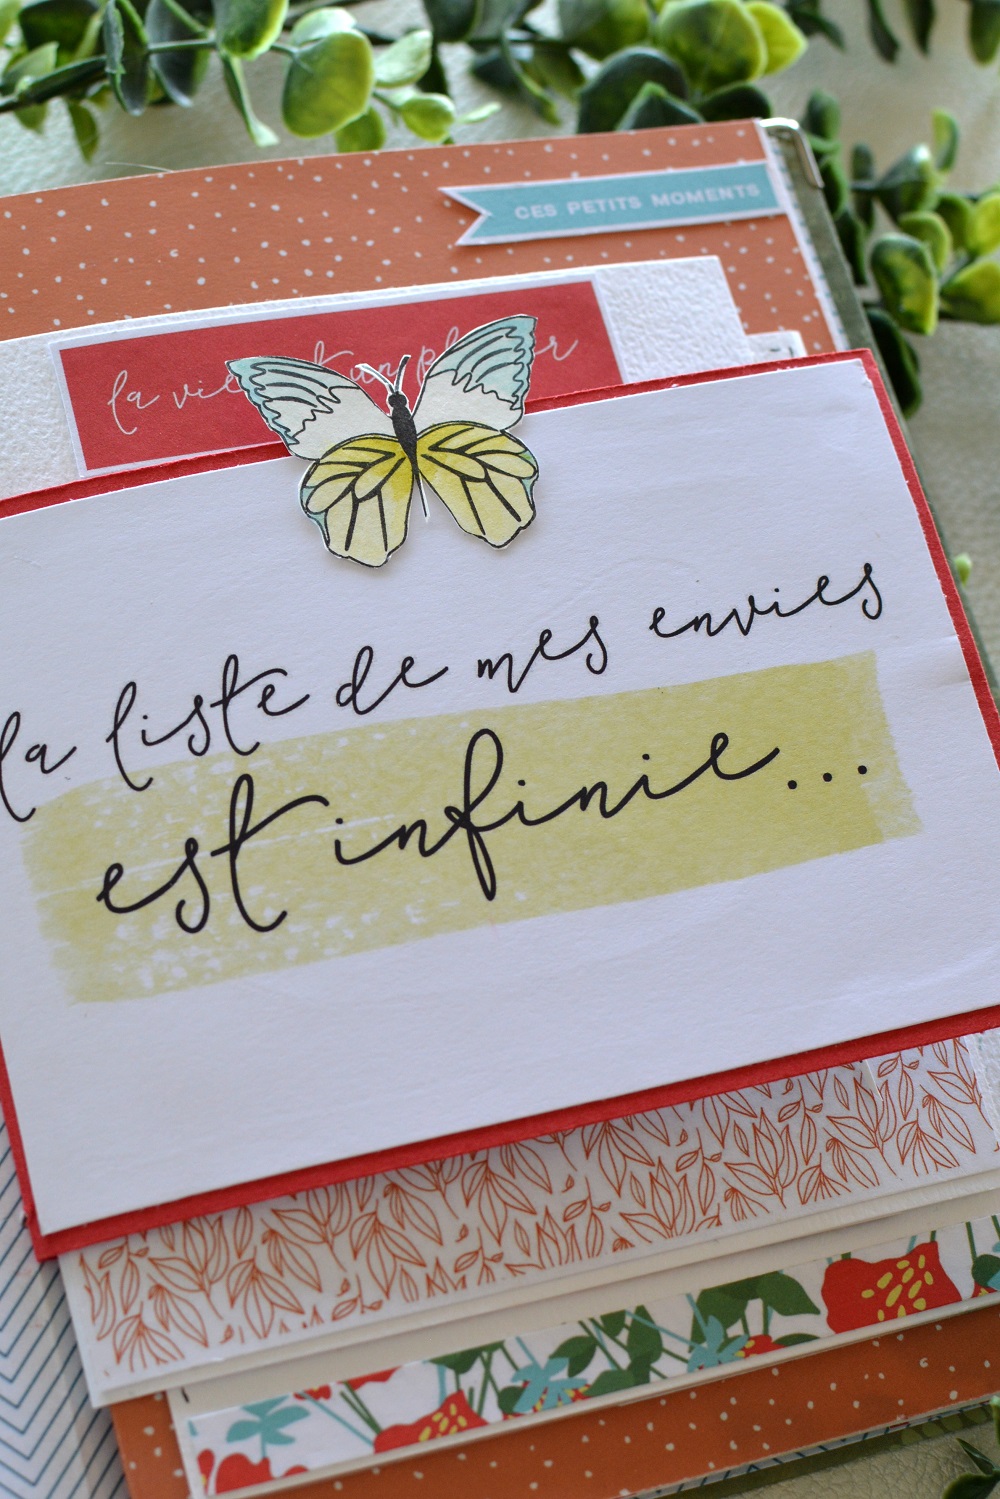 CES PETITS MOMENTS
la vie un
la liste de mes envies
est infinie...